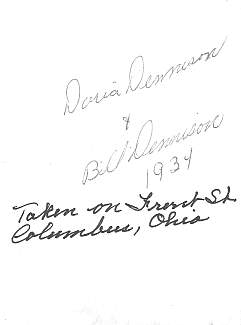 Doris Dennison
&
Bill Dennison
1934
Taken on Front St
Columbus, Ohio